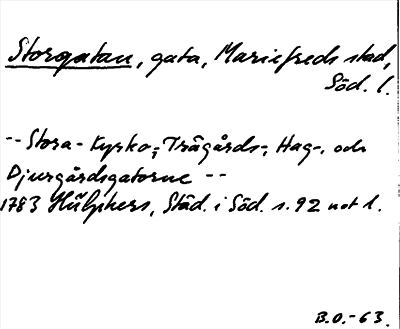 Storgatan, gata, Mariefreds stad,
Söd. l.
-- Stora- Kyrko-, Trägårds-, Hag-, och
Djurgårdsgatorne --
1783 Hülphers, Städ. i Söd. s. 92 not 1.
B.O.-63.